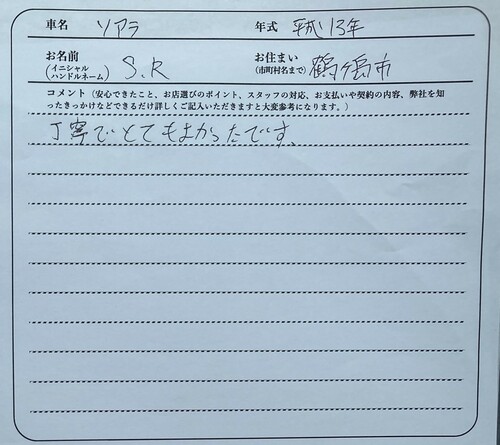 車名 ソアラ 年式 平成13年
お名前 お住まい
(イニシャル ハンドルネーム) S.R (市町村名まで) 鶴ヶ島市
コメント(安心できたこと、お店選びのポイント、スタッフの対応、お支払いや契約の内容、弊社を知
ったきっかけなどできるだけ詳しくご記入いただきますと大変参考になります。)
丁寧でとてもよかったです。